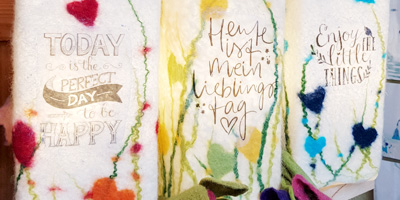 TODAY
is the
PERFECT
DAY
to be
HAPPY
Heute
ist
mein
Lieblings
tag
Enjoy
THE
little
THINGS